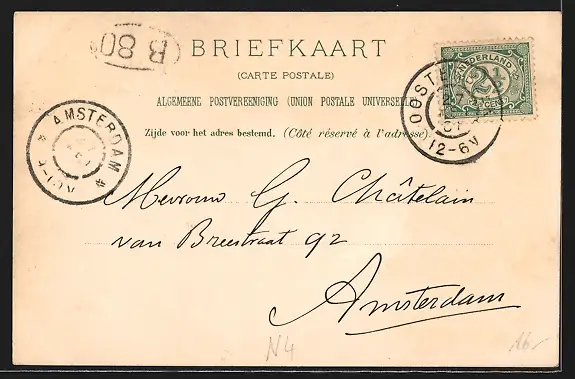 B 80
BRIEFKAART
(CARTE POSTALE)
ALGEMEENE POSTVEREENIGING (UNION POSTALE UNIVERSELLE)
Zijde voor het adres bestemd. (Côté réservé à l'adresse).
NEDERLAND
2½
CENT
OOSTE
12-6N
AMSTERDAM
Mevrouw G. Châtelain
van Breestraat 92
Amsterdam
N4